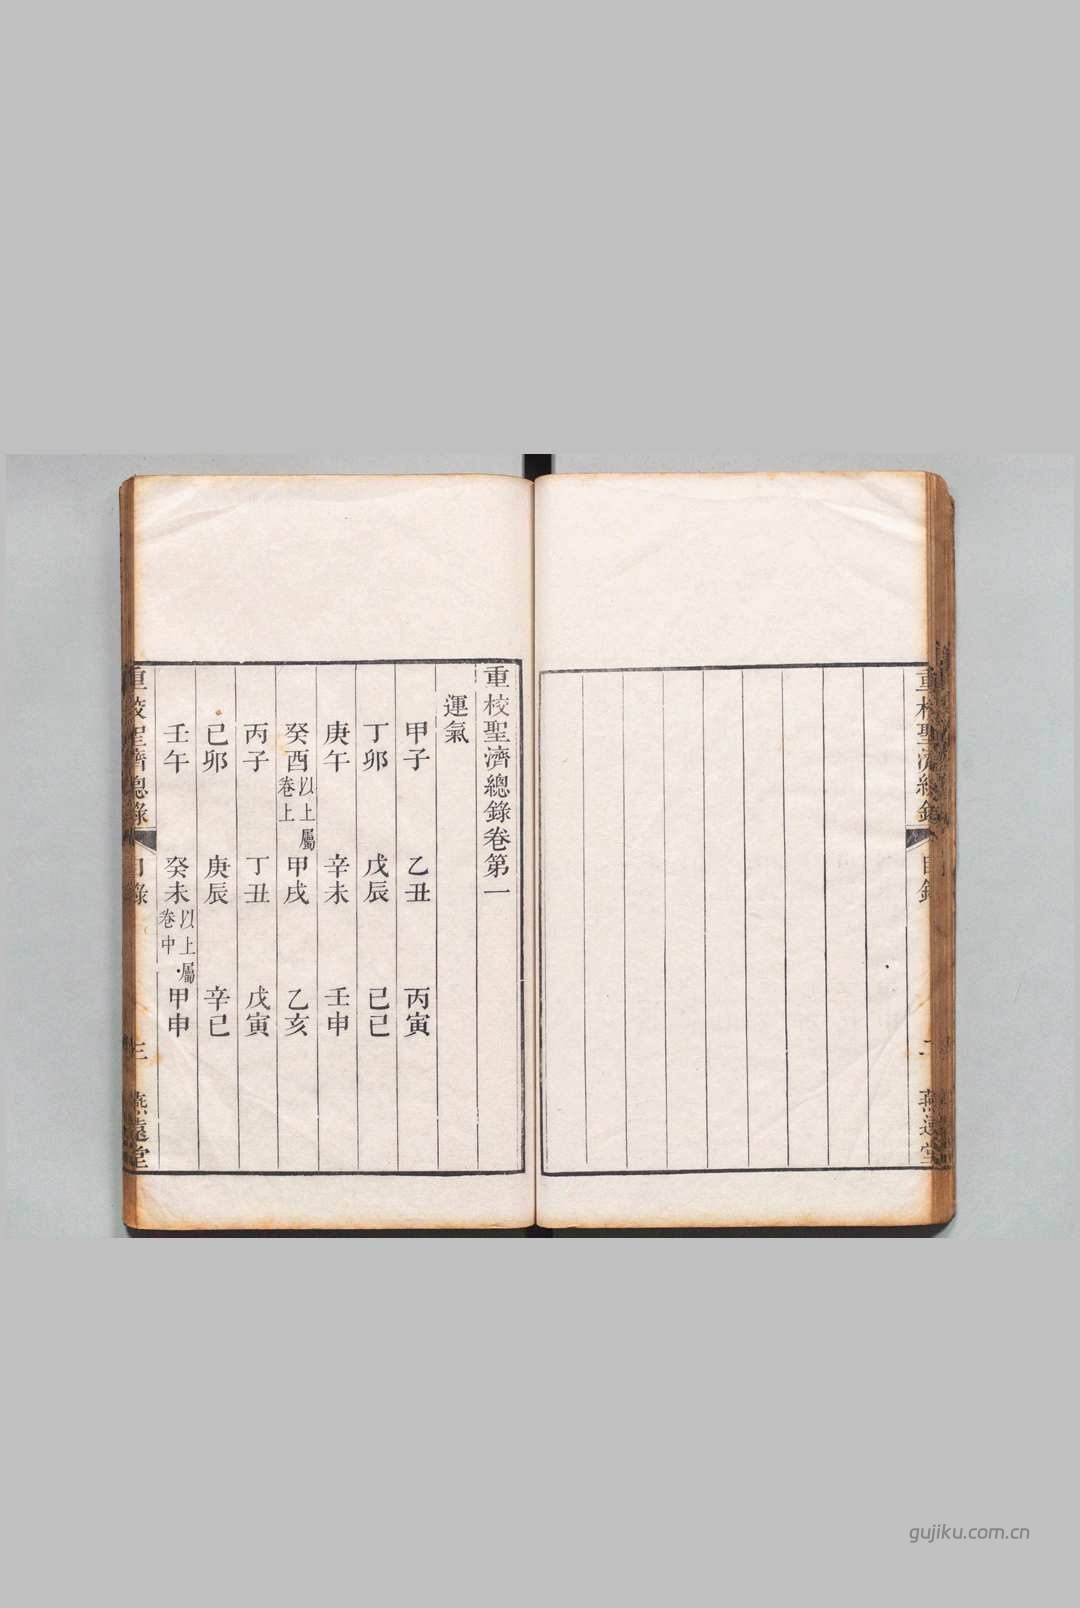 重校聖濟總錄
目錄
二
燕遠堂
重校聖濟總錄卷第一
運氣
甲子 乙丑 丙寅
丁卯 戊辰 己巳
庚午 辛未 壬申
癸酉 以上屬卷上 甲戌 乙亥
丙子 丁丑 戊寅
己卯 庚辰 辛巳
壬午 癸未 以上屬卷中 甲申
重校聖濟總錄
目錄
三
燕遠堂
gujiku.com.cn